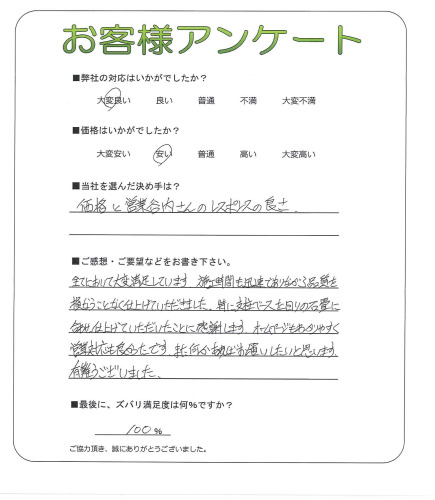 お客様アンケート
■弊社の対応はいかがでしたか？
大変良い 良い 普通 不満 大変不満
■価格はいかがでしたか？
大変安い 安い 普通 高い 大変高い
■当社を選んだ決め手は？
価格と営業谷内さんのレスポンスの良さ。
■ご感想・ご要望などをお書き下さい。
全てにおいて大変満足しています。施工時間も迅速でありながら品質を
損なうことなく仕上げていただきました。特に支柱ベースを回りの石畳に
合わせ仕上げていただいたことに感謝します。ホームページもわかりやすく
営業対応も良かったです。また何かあればお願いしたいと思います。
有難うございました。
■最後に、ズバリ満足度は何%ですか？
100 %
ご協力頂き、誠にありがとうございました。